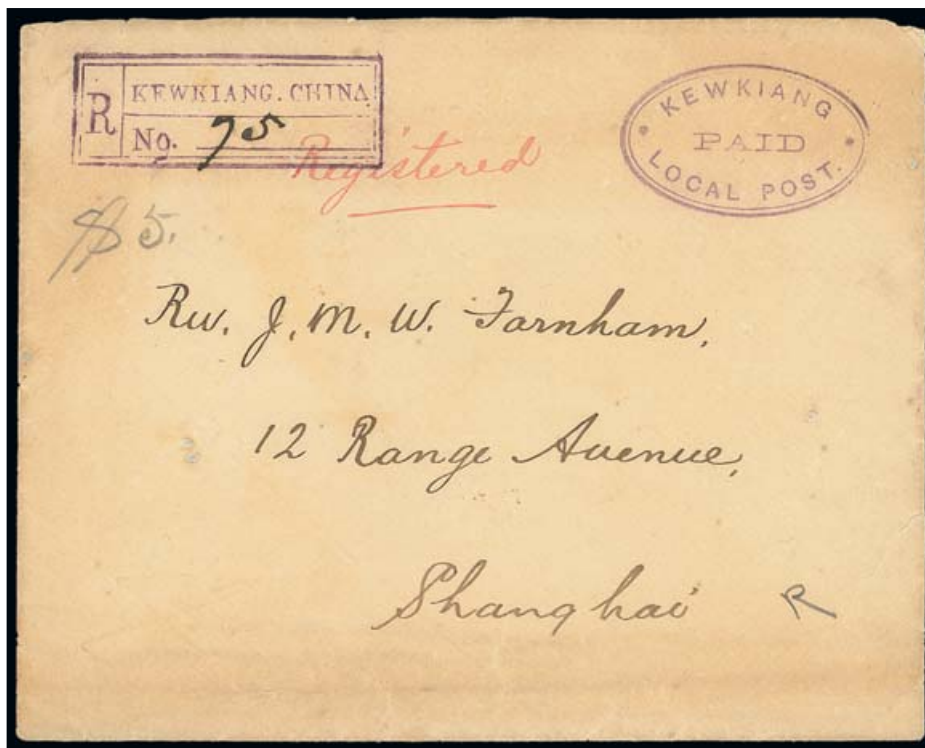 R
KEWKIANG. CHINA
No. 75
Registered
KEWKIANG
PAID
LOCAL POST.
$5.
Rev. J. M. W. Farnham,
12 Range Avenue,
Shanghai
R